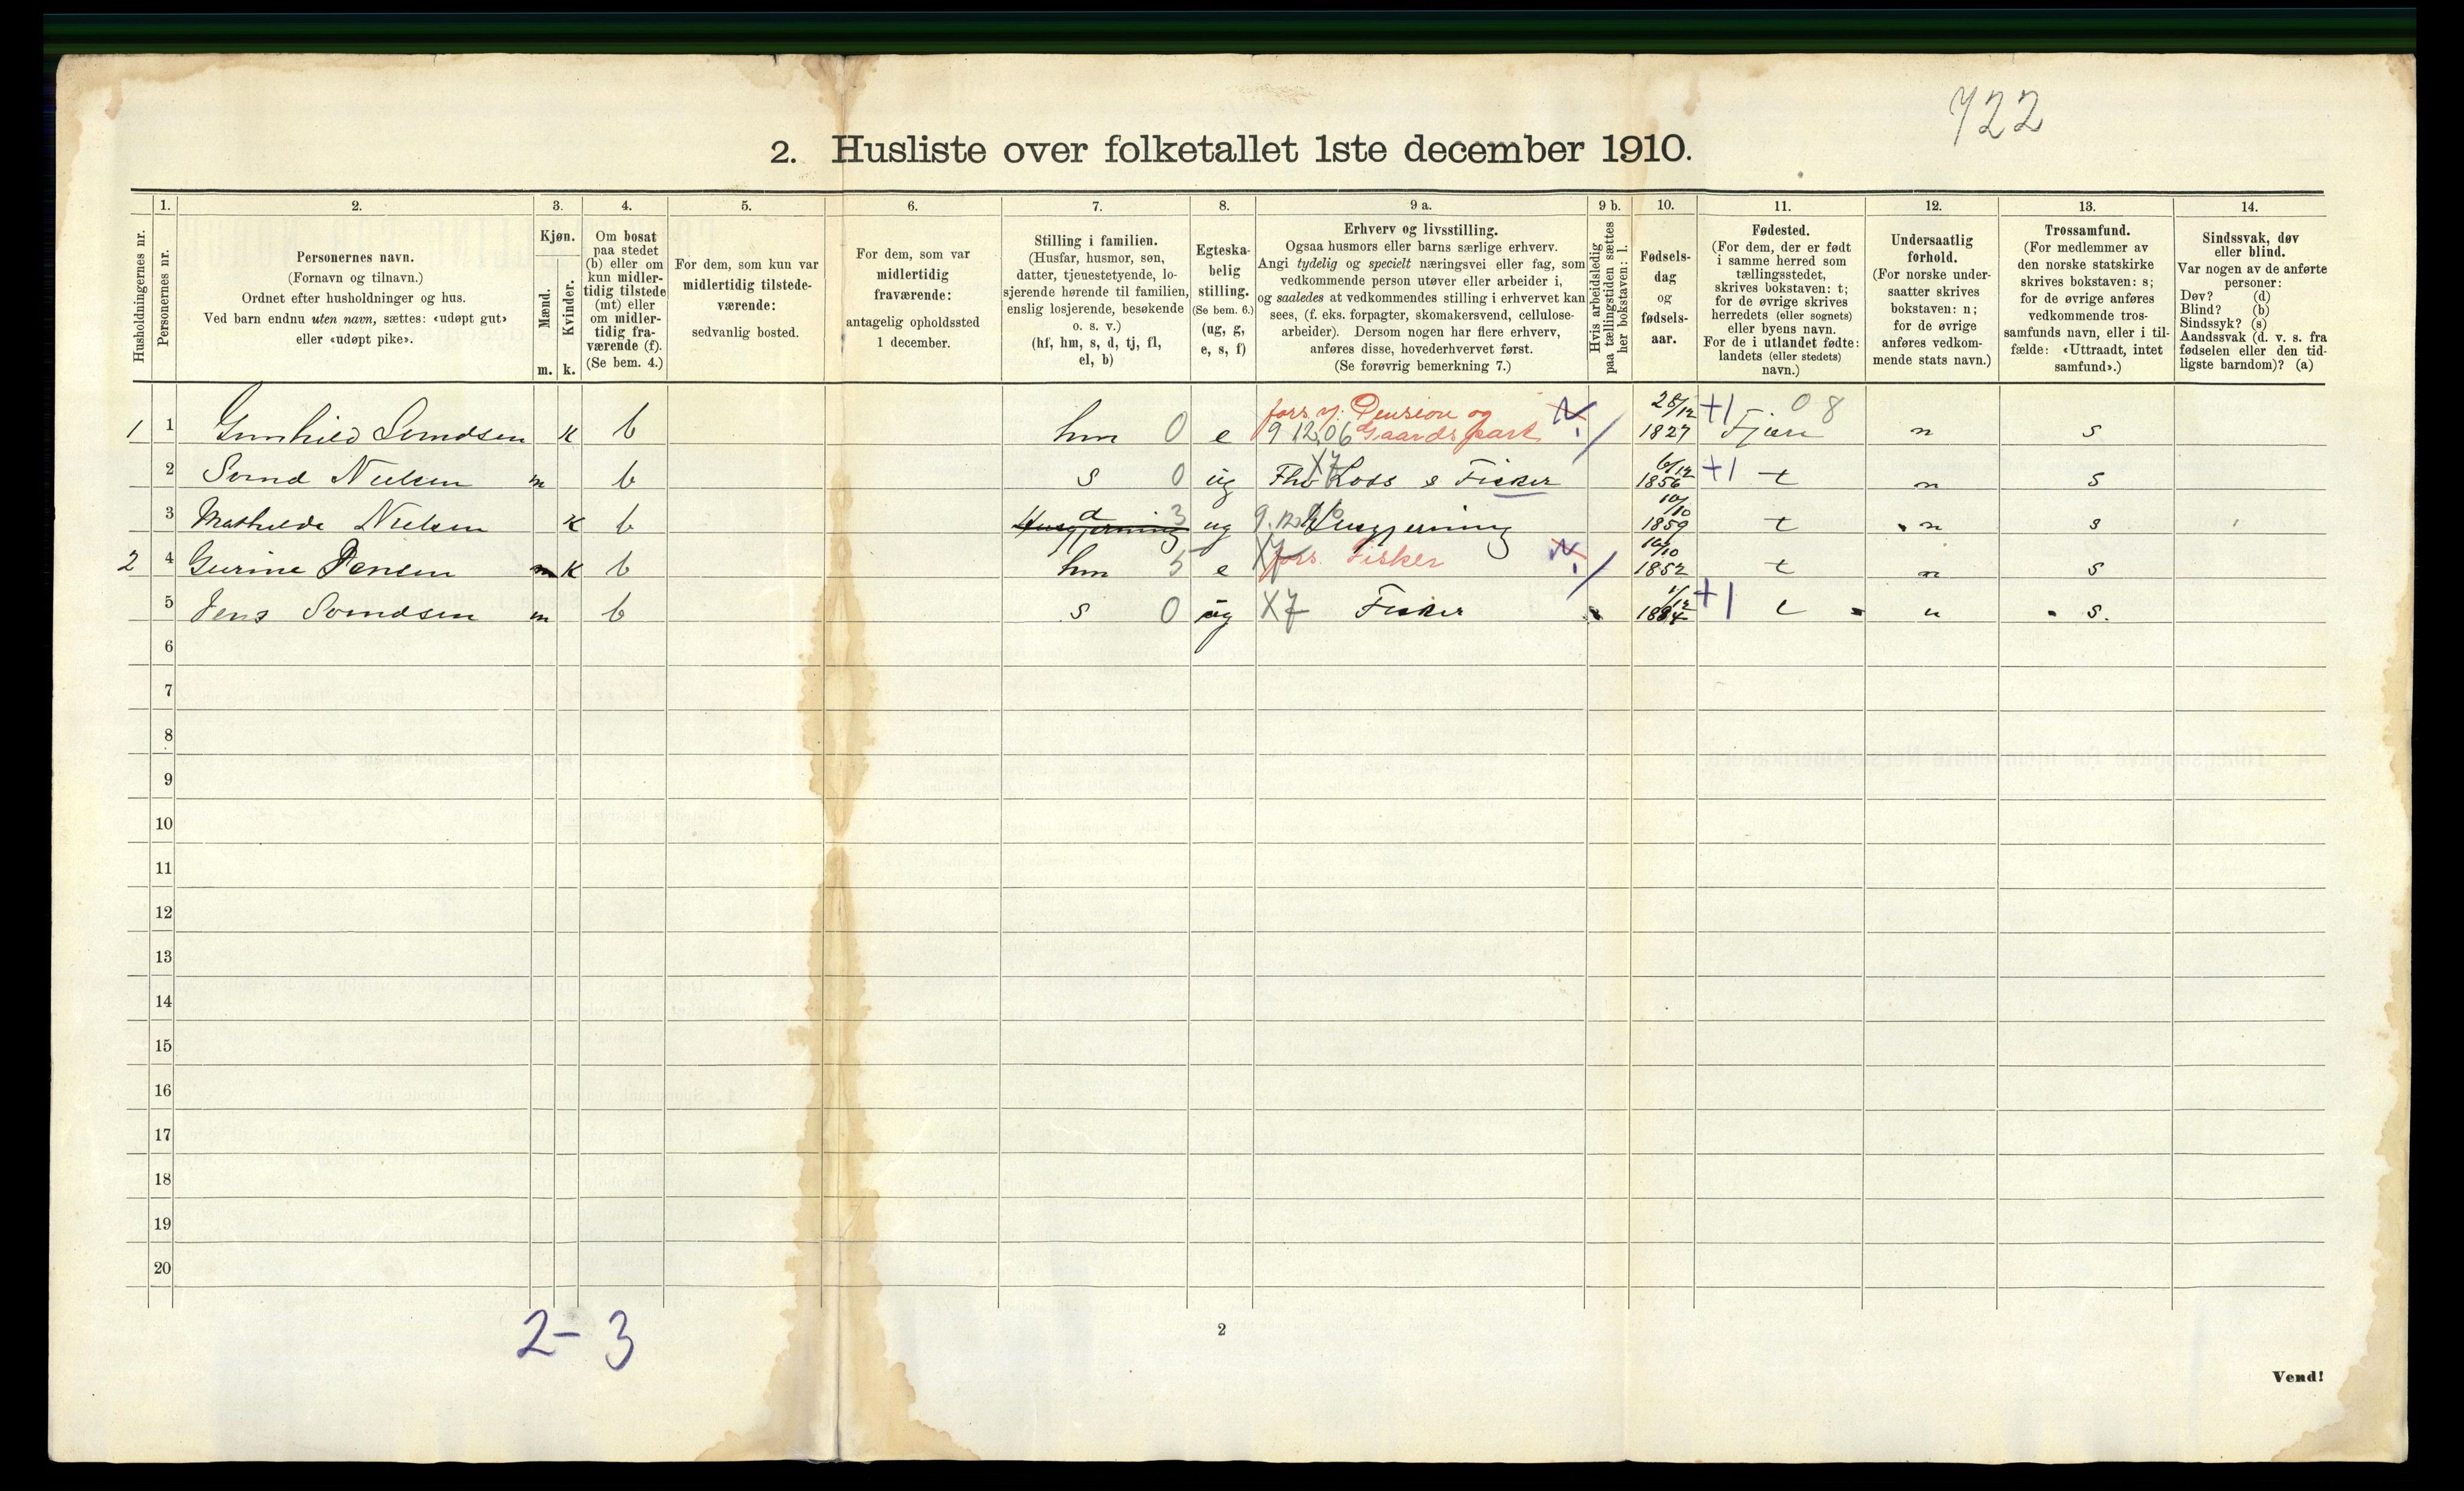 722
2. Husliste over folketallet 1ste december 1910.
Husholdningernes nr.
1.
Personernes nr.
2.
Personernes navn.
(Fornavn og tilnavn.)
Ordnet efter husholdninger og hus.
Ved barn endnu uten navn, sættes: «udøpt gut»
eller «udøpt pike».
3.
Kjøn.
Mænd.
Kvinder.
m. k.
4.
Om bosat
paa stedet
(b) eller om
kun midler-
tidig tilstede
(mt) eller
om midler-
tidig fra-
værende (f).
(Se bem. 4.)
5.
For dem, som kun var
midlertidig tilstede-
værende:
sedvanlig bosted.
6.
For dem, som var
midlertidig
fraværende:
antagelig opholdssted
1 december.
7.
Stilling i familien.
(Husfar, husmor, søn,
datter, tjenestetyende, lo-
sjerende hørende til familien,
enslig losjerende, besøkende
o. s. v.)
(hf, hm, s, d, tj, fl,
el, b)
8.
Egteska-
belig
stilling.
(Se bem. 6.)
(ug, g,
e, s, f)
9 a.
Erhverv og livsstilling.
Ogsaa husmors eller barns særlige erhverv.
Angi tydelig og specielt næringsvei eller fag, som
vedkommende person utøver eller arbeider i,
og saaledes at vedkommendes stilling i erhvervet kan
sees, (f. eks. forpagter, skomakersvend, cellulose-
arbeider). Dersom nogen har flere erhverv,
anføres disse, hovederhvervet først.
(Se forøvrig bemerkning 7.)
9 b.
Hvis arbeidsledig
paa tællingstiden sættes
her bokstaven: l.
10.
Fødsels-
dag
og
fødsels-
aar.
11.
Fødested.
(For dem, der er født
i samme herred som
tællingsstedet,
skrives bokstaven: t;
for de øvrige skrives
herredets (eller sognets)
eller byens navn.
For de i utlandet fødte:
landets (eller stedets)
navn.)
12.
Undersaatlig
forhold.
(For norske under-
saatter skrives
bokstaven: n;
for de øvrige
anføres vedkom-
mende stats navn.)
13.
Trossamfund.
(For medlemmer av
den norske statskirke
skrives bokstaven: s;
for de øvrige anføres
vedkommende tros-
samfunds navn, eller i til-
fælde: «Uttraadt, intet
samfund».)
14.
Sindssvak, døv
eller blind.
Var nogen av de anførte
personer:
Døv? (d)
Blind? (b)
Sindssyk? (s)
Aandssvak (d. v. s. fra
fødselen eller den tid-
ligste barndom)? (a)
fors. v. Pension og N 28/12 +1 0 8
1 1 Gunhild Svendsen k b hm 0 e 9 12.06 Gaardspart 1827 Fjære n s
2 Svend Nielsen m b s 0 ug X7 Lods & Fisker 6/12 1856 +1 t n s
3 Mathilde Nielsen k b Husgjerning d 3 ug Husgjerning 10/10 1859 t n s
2 4 Gurine Jensen m k b hm 5 e X7 fors. Fisker N 10/10 1852 t n s
5 Jens Svendsen m b s 0 ug X7 Fisker 1/12 1884 +1 t n s.
6
7
8
9
10
11
12
13
14
15
16
17
18
19
20
2-3
2
Vend!